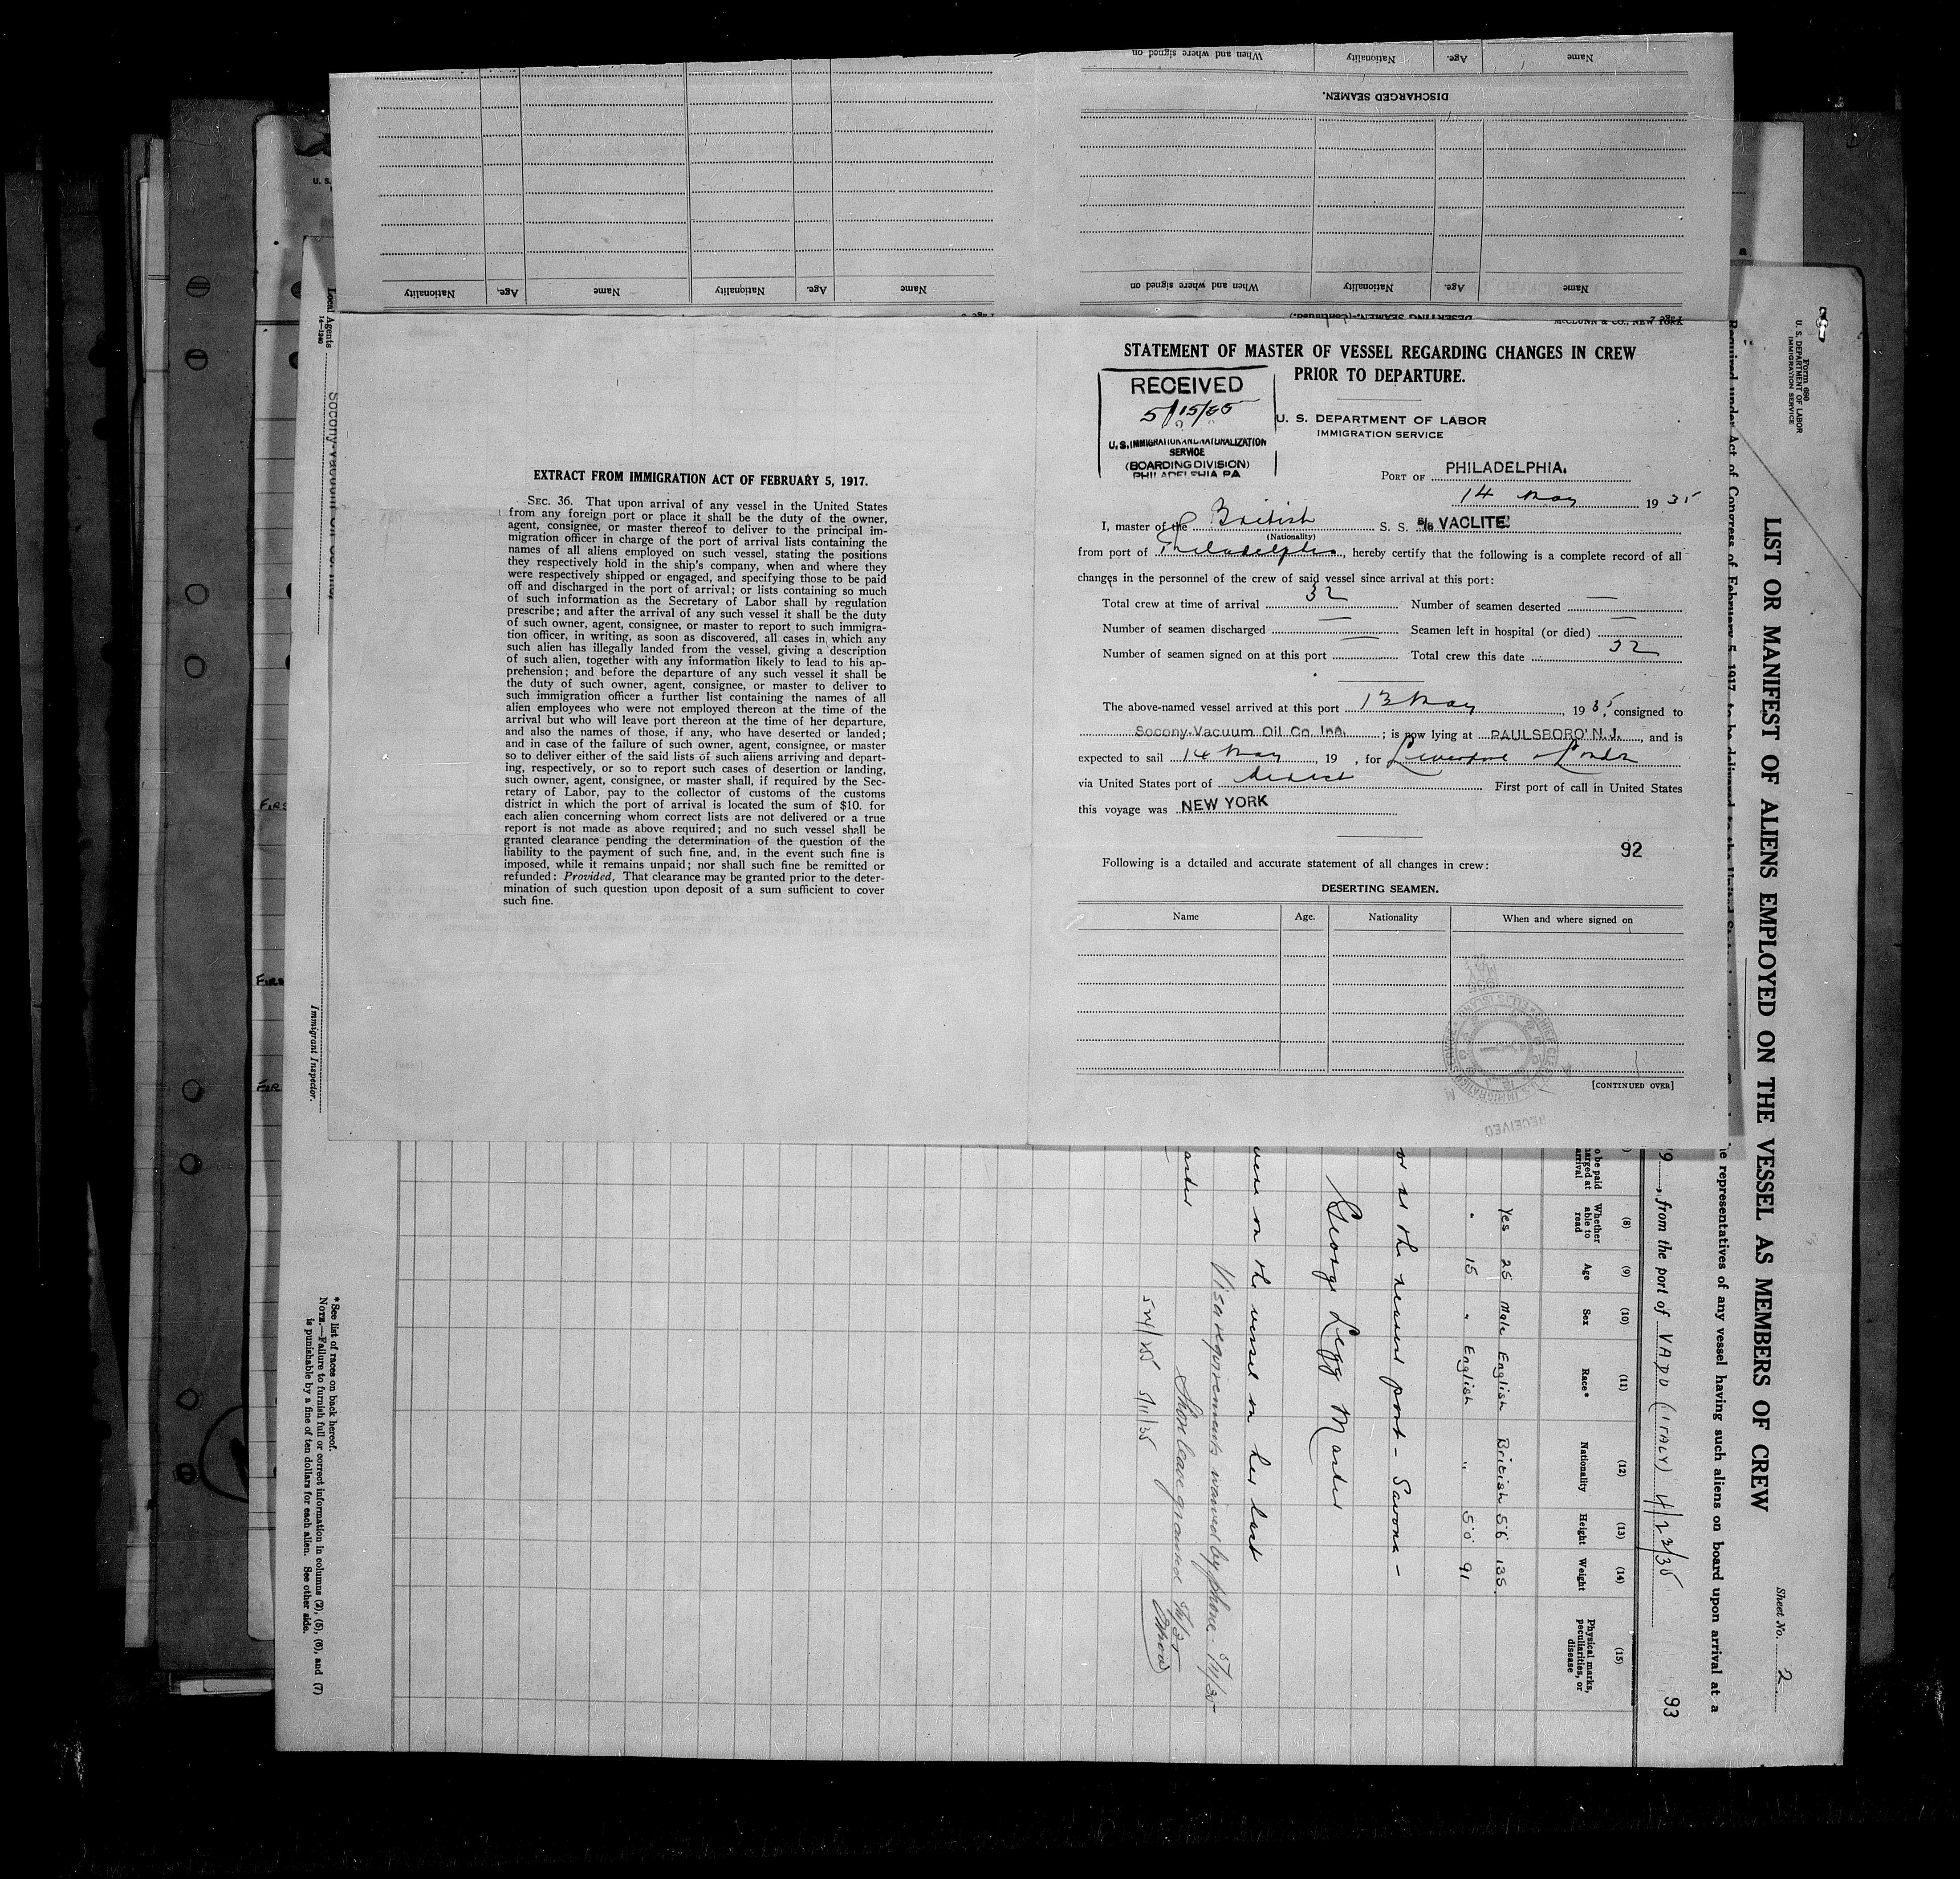 When and where signed on
Nationality
Age.
Name
DISCHARGED SEAMEN.
Nationality
Age.
Name
Nationality
Age.
Name
When and where signed on
Nationality
Age.
Name
DESERTING SEAMEN.—(Continued.)
McCLUNN & CO., NEW YORK
STATEMENT OF MASTER OF VESSEL REGARDING CHANGES IN CREW
PRIOR TO DEPARTURE.
RECEIVED
5/15/35
U. S. IMMIGRATION AND NATURALIZATION
SERVICE
(BOARDING DIVISION)
PHILADELPHIA PA
U. S. DEPARTMENT OF LABOR
IMMIGRATION SERVICE
PORT OF PHILADELPHIA.
14 May 1935
I, master of the British S. S. S/S VACLITE
(Nationality)
from port of Philadelphia, hereby certify that the following is a complete record of all
changes in the personnel of the crew of said vessel since arrival at this port:
Total crew at time of arrival 32 Number of seamen deserted —
Number of seamen discharged — Seamen left in hospital (or died) —
Number of seamen signed on at this port — Total crew this date 32
The above-named vessel arrived at this port 13 May, 1935, consigned to
Socony-Vacuum Oil Co. Inc. ; is now lying at PAULSBORO' N. J., and is
expected to sail 14 May, 19 , for Liverpool &
via United States port of direct First port of call in United States
this voyage was NEW YORK
92
Following is a detailed and accurate statement of all changes in crew:
DESERTING SEAMEN.
Name Age. Nationality When and where signed on
[CONTINUED OVER]
RECEIVED
EXTRACT FROM IMMIGRATION ACT OF FEBRUARY 5, 1917.
SEC. 36. That upon arrival of any vessel in the United States
from any foreign port or place it shall be the duty of the owner,
agent, consignee, or master thereof to deliver to the principal im-
migration officer in charge of the port of arrival lists containing the
names of all aliens employed on such vessel, stating the positions
they respectively hold in the ship's company, when and where they
were respectively shipped or engaged, and specifying those to be paid
off and discharged in the port of arrival; or lists containing so much
of such information as the Secretary of Labor shall by regulation
prescribe; and after the arrival of any such vessel it shall be the duty
of such owner, agent, consignee, or master to report to such immigra-
tion officer, in writing, as soon as discovered, all cases in which any
such alien has illegally landed from the vessel, giving a description
of such alien, together with any information likely to lead to his ap-
prehension; and before the departure of any such vessel it shall be
the duty of such owner, agent, consignee, or master to deliver to
such immigration officer a further list containing the names of all
alien employees who were not employed thereon at the time of the
arrival but who will leave port thereon at the time of her departure,
and also the names of those, if any, who have deserted or landed;
and in case of the failure of such owner, agent, consignee, or master
so to deliver either of the said lists of such aliens arriving and depart-
ing, respectively, or so to report such cases of desertion or landing,
such owner, agent, consignee, or master shall, if required by the Sec-
retary of Labor, pay to the collector of customs of the customs
district in which the port of arrival is located the sum of $10. for
each alien concerning whom correct lists are not delivered or a true
report is not made as above required; and no such vessel shall be
granted clearance pending the determination of the question of the
liability to the payment of such fine, and, in the event such fine is
imposed, while it remains unpaid; nor shall such fine be remitted or
refunded: Provided, That clearance may be granted prior to the deter-
mination of such question upon deposit of a sum sufficient to cover
such fine.
Form 680
U. S. DEPARTMENT OF LABOR
IMMIGRATION SERVICE
Sheet No. 2
LIST OR MANIFEST OF ALIENS EMPLOYED ON THE VESSEL AS MEMBERS OF CREW
Required under Act of Congress of February 5, 1917, to be delivered to the United States
representatives of any vessel having such aliens on board upon arrival at a
19 , from the port of VADO (ITALY) 4/23/35
93
(8) (9) (10) (11) (12) (13) (14) (15)
Whether able to read Age Sex Race* Nationality Height Weight Physical marks, peculiarities, or disease
Yes 25 Male English British 5'6" 135.
" 15 " English " 5'0" 91
or as the nearest port - Savona -
George Legg Master
were on the vessel on her last
Visa requirements waived by phone. 5/11/35
Shore leave granted
5/11/35
Local Agents Socony-Vacuum Oil Co. Inc.
14—1240
Immigrant Inspector.
* See list of races on back hereof.
NOTE.—Failure to furnish full or correct information in columns (2), (5), (6), and (7)
is punishable by a fine of ten dollars for each alien. See other side.